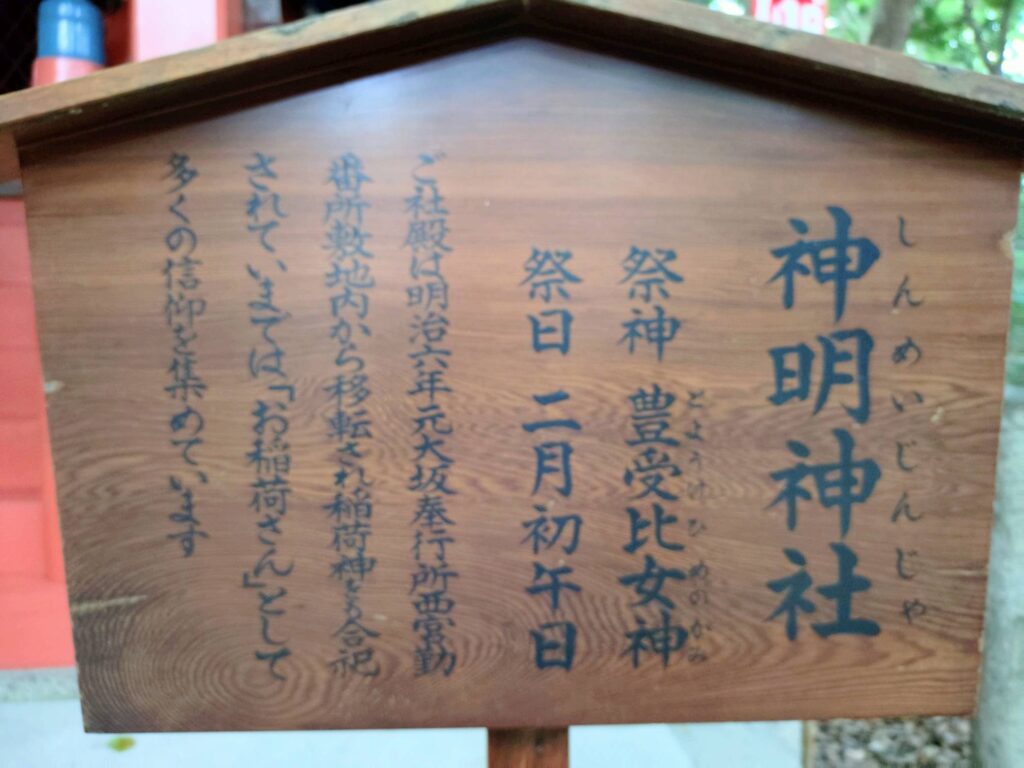 しんめいじんじゃ
神明神社
祭神 豊受比女神
とようけひめのかみ
祭日 二月初午日
ご社殿は明治六年元大坂奉行所西宮勤
番所敷地内から移転され稲荷神も合祀
されて、いまでは「お稲荷さん」として
多くの信仰を集めています